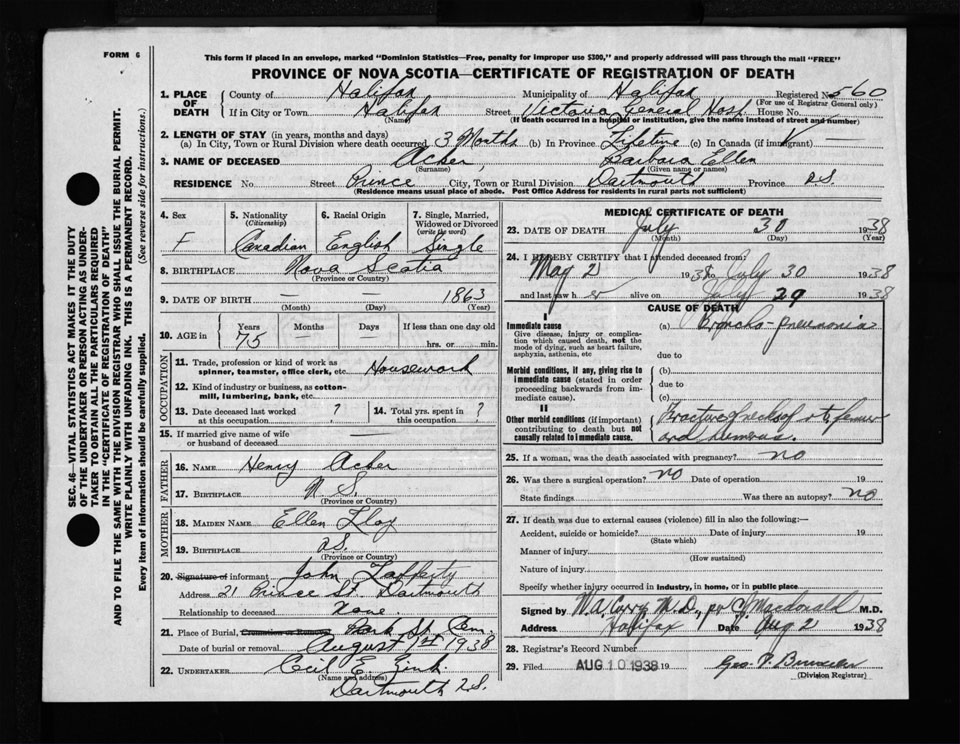 FORM 6
This form if placed in an envelope, marked "Dominion Statistics—Free, penalty for improper use $300," and properly addressed will pass through the mail "FREE"
PROVINCE OF NOVA SCOTIA—CERTIFICATE OF REGISTRATION OF DEATH
1. PLACE OF DEATH
County of Halifax Municipality of Halifax Registered No. 560
(For use of Registrar General only)
If in City or Town Halifax Street Victoria General Hosp. House No.
(Name) (If death occurred in a hospital or institution, give the name instead of street and number)
2. LENGTH OF STAY (in years, months and days)
(a) In City, Town or Rural Division where death occurred 3 Months (b) In Province Lifetime (c) In Canada (if immigrant) —
3. NAME OF DECEASED Acker, Barbara Ellen
(Surname) (Given name or names)
RESIDENCE No. Street Prince City, Town or Rural Division Dartmouth Province N.S.
(Residence means usual place of abode. Post Office Address for residents in rural parts not sufficient)
4. Sex
F
5. Nationality
(Citizenship)
Canadian
6. Racial Origin
English
7. Single, Married, Widowed or Divorced
(write the word)
Single
8. BIRTHPLACE Nova Scotia
(Province or Country)
9. DATE OF BIRTH — — 1863
(Month) (Day) (Year)
10. AGE in
Years Months Days If less than one day old
75 — — hrs. or min.
OCCUPATION
11. Trade, profession or kind of work as spinner, teamster, office clerk, etc. Housework
12. Kind of industry or business, as cotton-mill, lumbering, bank, etc.
13. Date deceased last worked at this occupation ?
14. Total yrs. spent in this occupation ?
15. If married give name of wife or husband of deceased —
FATHER
16. NAME Henry Acker
17. BIRTHPLACE N S.
(Province or Country)
MOTHER
18. MAIDEN NAME Ellen
19. BIRTHPLACE N.S.
(Province or Country)
20. Signature of informant John Lafferty
Address 21 Prince St. Dartmouth
Relationship to deceased None.
21. Place of Burial, Cremation or Removal Park St. Cem.
Date of burial or removal August 1st 1938
22. UNDERTAKER Cecil E. Zink.
(Name and address)
Dartmouth N.S.
MEDICAL CERTIFICATE OF DEATH
23. DATE OF DEATH July 30 1938
(Month) (Day) (Year)
24. I HEREBY CERTIFY that I attended deceased from:
May 2 1938 to July 30 1938
and last saw her alive on July 29 1938
CAUSE OF DEATH
I
Immediate cause
Give disease, injury or complication which caused death, not the mode of dying, such as heart failure, asphyxia, asthenia, etc
(a) Broncho-pneumonia
due to
Morbid conditions, if any, giving rise to immediate cause (stated in order proceeding backwards from immediate cause).
(b)
due to
(c)
II
Other morbid conditions (if important) contributing to death but not causally related to immediate cause.
Fracture of necks of rt. femur and humerus.
25. If a woman, was the death associated with pregnancy? no
26. Was there a surgical operation? no Date of operation 19
State findings Was there an autopsy? no
27. If death was due to external causes (violence) fill in also the following:—
Accident, suicide or homicide? Date of injury 19
(State which)
Manner of injury
(How sustained)
Nature of injury
Specify whether injury occurred in industry, in home, or in public place
Signed by W.A. Curry M.D., per Macdonald M.D.
Address Halifax Date Aug 2 1938
28. Registrar's Record Number
29. Filed AUG 10 1938 19 Geo.
(Division Registrar)
SEC. 46—VITAL STATISTICS ACT MAKES IT THE DUTY
OF THE UNDERTAKER OR PERSON ACTING AS UNDER-
TAKER TO OBTAIN ALL THE PARTICULARS REQUIRED
IN THE "CERTIFICATE OF REGISTRATION OF DEATH"
AND TO FILE THE SAME WITH THE DIVISION REGISTRAR WHO SHALL ISSUE THE BURIAL PERMIT.
WRITE PLAINLY WITH UNFADING INK. THIS IS A PERMANENT RECORD.
Every item of information should be carefully supplied. (See reverse side for instructions.)